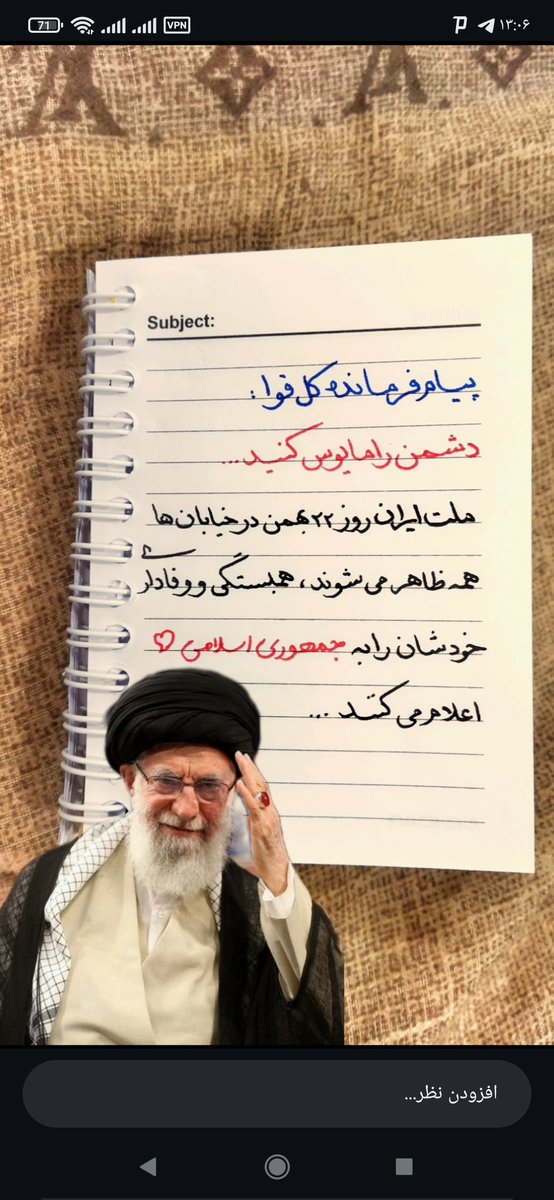 71 VPN ۱۳:۰۶
Subject:
پیام فرمانده کل قوا :
دشمن را مایوس کنید...
ملت ایران روز ۲۲ بهمن در خیابان ها
همه ظاهر می شوند ، همبستگی و وفاداری
خودشان را به جمهوری اسلامی ♡
اعلام می کنند ...
افزودن نظر...